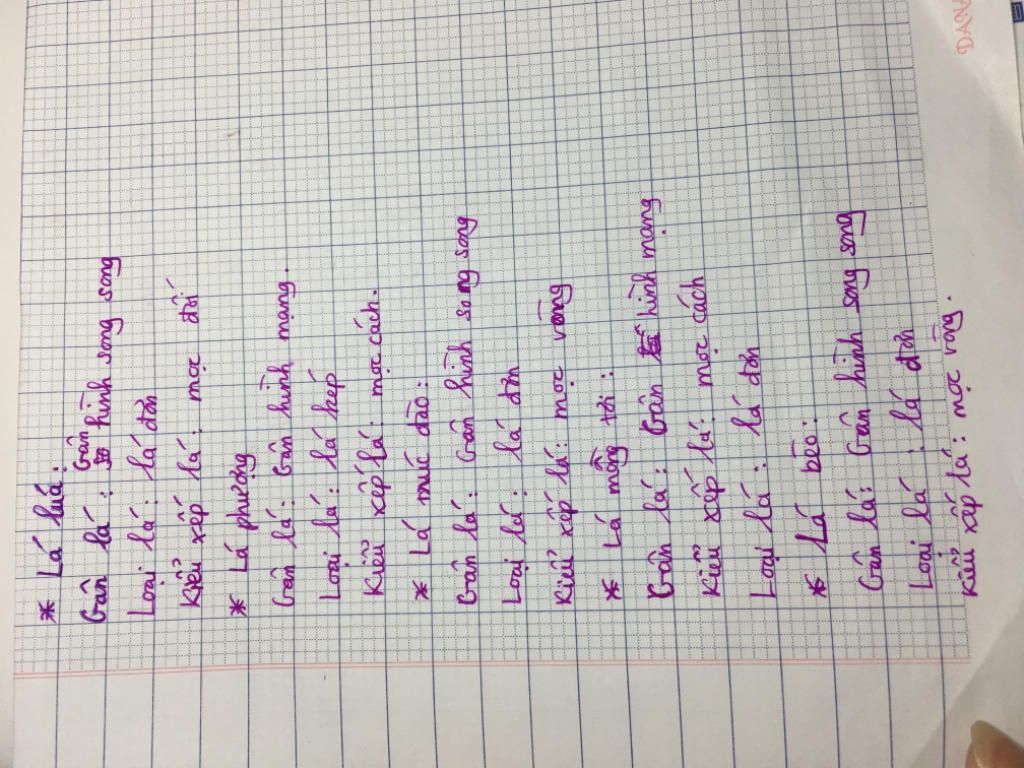 * Lá lúa:
Gân lá: Gân hình song song
Loại lá: lá đơn
Kiểu xếp lá: mọc đối
* Lá phượng
Gân lá: Gân hình mạng.
Loại lá: lá kép
Kiểu xếp lá: mọc cách.
* Lá trúc đào:
Gân lá: Gân hình song song
Loại lá: lá đơn
Kiểu xếp lá: mọc vòng
* Lá mồng tơi:
Gân lá: Gân hình mạng
Kiểu xếp lá: mọc cách
Loại lá: lá đơn
* Lá bèo:
Gân lá: Gân hình song song
Loại lá: lá đơn
Kiểu xếp lá: mọc vòng.